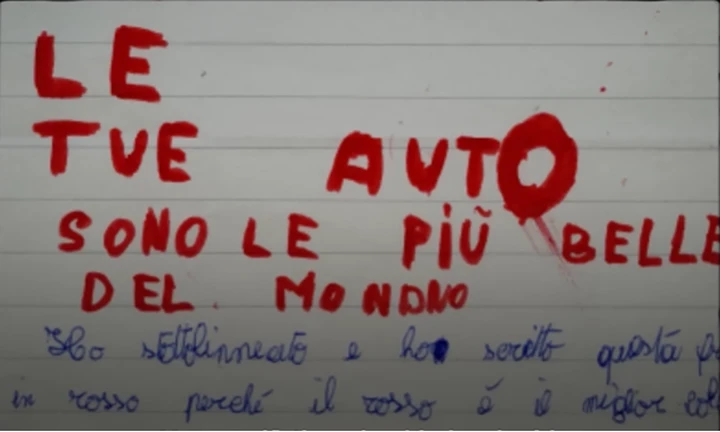 LE
TUE AUTO
SONO LE PIÙ BELLE
DEL MONDNO
Ho sottolinneato e ho scritto questa
in rosso perché il rosso é il miglior